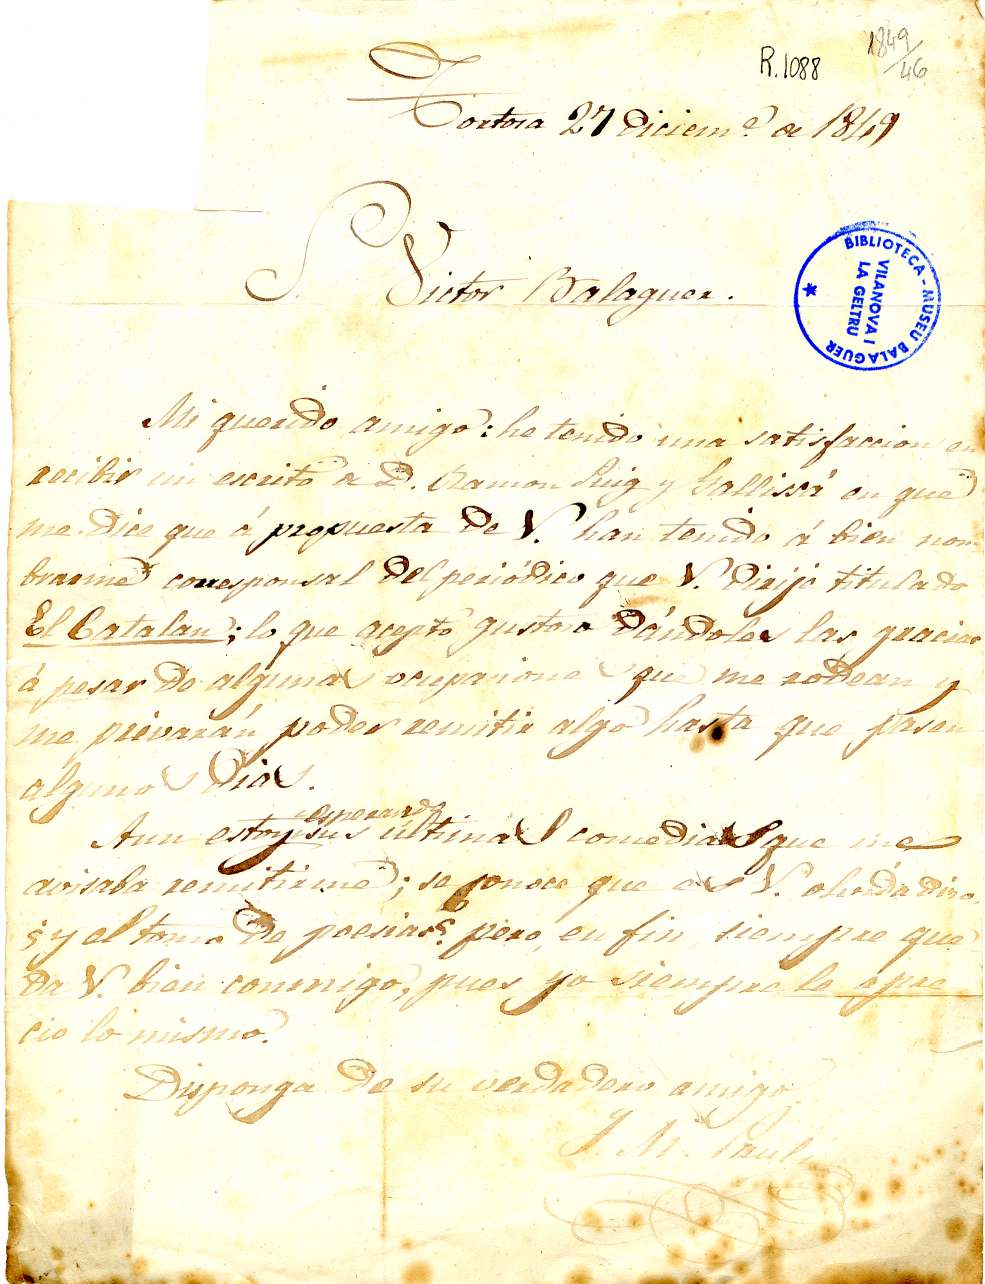 R.1088
1849/46
Tortosa 27 Diciem.e de 1849
S. Victor Balaguer.
BIBLIOTECA-MUSEU BALAGUER
VILANOVA I
LA GELTRU
Mi querido amigo: he tenido una satisfaccion en
recibir un escrito de D. Ramon Puig y Gallissá en que
me dice que á propuesta de V. han tenido á bien nom
brarme corresponsal del periódico que V. dirije titulado
El Catalan; lo que acepto gustoso dándoles las gracias
á pesar de algunas ocupaciones que me rodean y
me privarán poder remitir algo hasta que pasen
algunos dias.
Aun estoy esperando sus ultimas comedias que me
avisaba remitirme; se conoce que es V. olvidadizo.
¿y el tomo de poesias? pero, en fin, siempre que
da V. bien conmigo, pues yo siempre le apre
cio lo mismo.
Disponga de su verdadero amigo.
J. M. Pauli